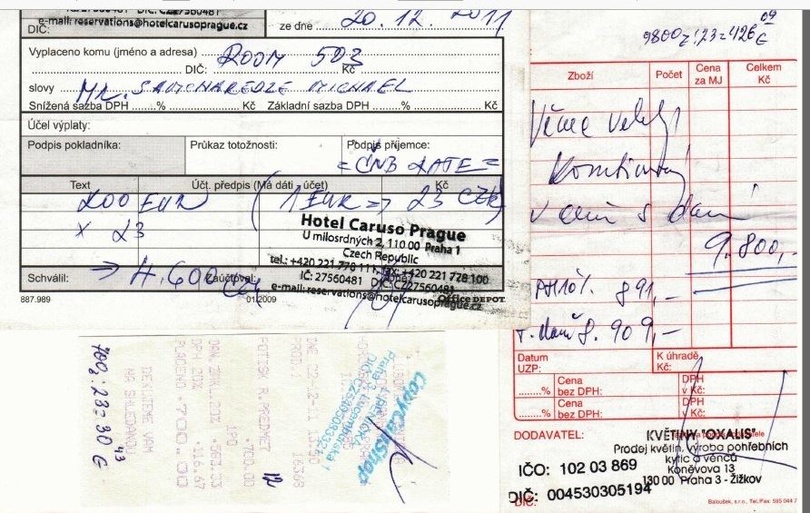 e-mail: reservations@hotelcarusoprague.cz
DIČ:
ze dne 20.12.2011
Vyplaceno komu (jméno a adresa) ROOM 503
DIČ: Kč
slovy MR. MICHAEL
Snížená sazba DPH ......% Kč Základní sazba DPH ......% Kč
Účel výplaty:
Podpis pokladníka: Průkaz totožnosti: Podpis příjemce:
=ČNB RATE=
Text Účt. předpis (Má dáti, účet) Kč
200 EUR (1 EUR => 23 CZK)
x 23
Hotel Caruso Prague
U milosrdných 2, 110 00 Praha 1
Czech Republic
tel.: +420 221 778 111, fax: +420 221 778 100
IČ: 27560481 DIČ: CZ27560481
e-mail: reservations@hotelcarusoprague.cz
Schválil: → 4.600 CZK Zaúčtoval:
887.989 01/2009 Office DEPOT
9800 : 23 = 426 09 €
Zboží Počet Cena za MJ Celkem Kč
Věnec velký
9.800,-
891,-
8.909,-
Datum UZP: K úhradě Kč:
......% Cena bez DPH: DPH v Kč:
......% Cena bez DPH: DPH v Kč:
DODAVATEL:
KVĚTINY "OXALIS"
Prodej květin, výroba pohřebních
kytic a věnců
Koněvova 13
130 00 Praha 3 - Žižkov
IČO: 102 03 869
DIČ: 004530305194
Baloušek, s.r.o.
700,- : 23 = 30 43 €
NA SHLEDANOU
DĚKUJEME VÁM
PLACENO *700.00
DPH 20% *116.67
DAN ZAKL.20% *583.33
*700.00
POTISK R.PREDMET
CopycatShop